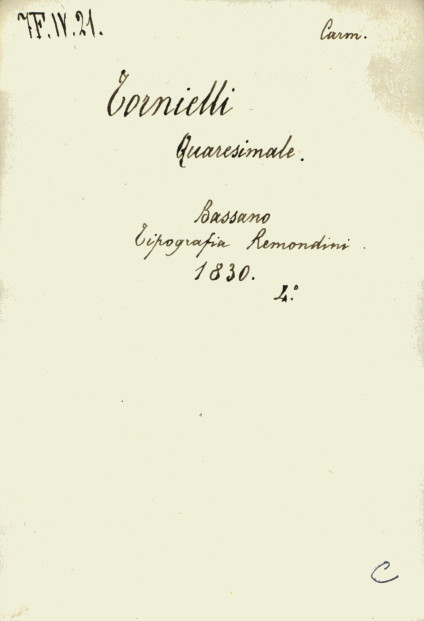 7F.IV.21.
Carm.
Tornielli
Quaresimale.
Bassano
Tipografia Remondini.
1830.
4.º
C